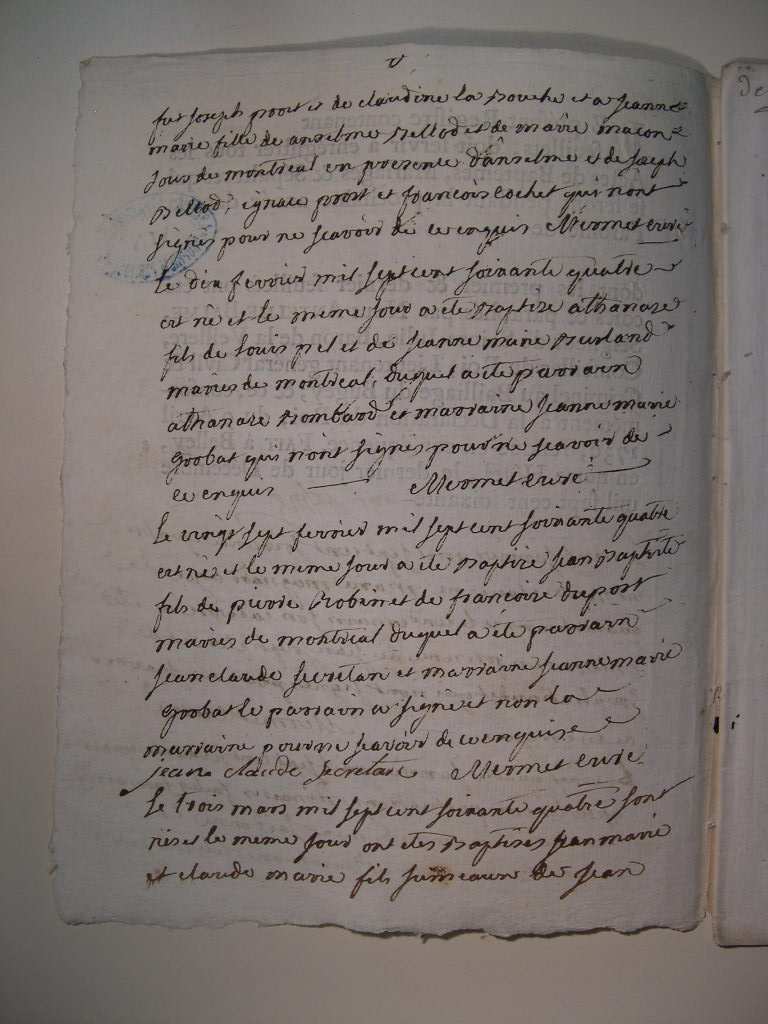 fut joseph prost et de claudine la Bouche et a jeanne
marie fille de anselme Bellod et de marie macon
tous de montreal en presence d'anselme et de joseph
Bellod, ignace prost et francois cochet qui n'ont
signés pour ne scavoir de ce enquis Mermet curé
Le dix fevrier mil sept cent soixante quatre
est né et le meme jour a été Baptize athanaze
fils de Louis pel et de jeanne marie Burland
mariés de montreal, duquel a été parrain
athanaze Bombard et marraine jeanne marie
Goobat qui n'ont signés pour ne scavoir de
ce enquis Mermet curé
Le vingt sept fevrier mil sept cent soixante quatre
est né et le meme jour a été Baptize jean Baptiste
fils de pierre Robin et de francoise duport
mariés de montreal duquel a été parrain
jean claude secretan et marraine jeanne marie
Goobat le parrain a signé et non la
marraine pour ne scavoir de ce enquise
jean claude secretan Mermet curé
Le trois mars mil sept cent soixante quatre sont
nés et le meme jour ont etes Baptises jean marie
et claude marie fils jumeaux de jean